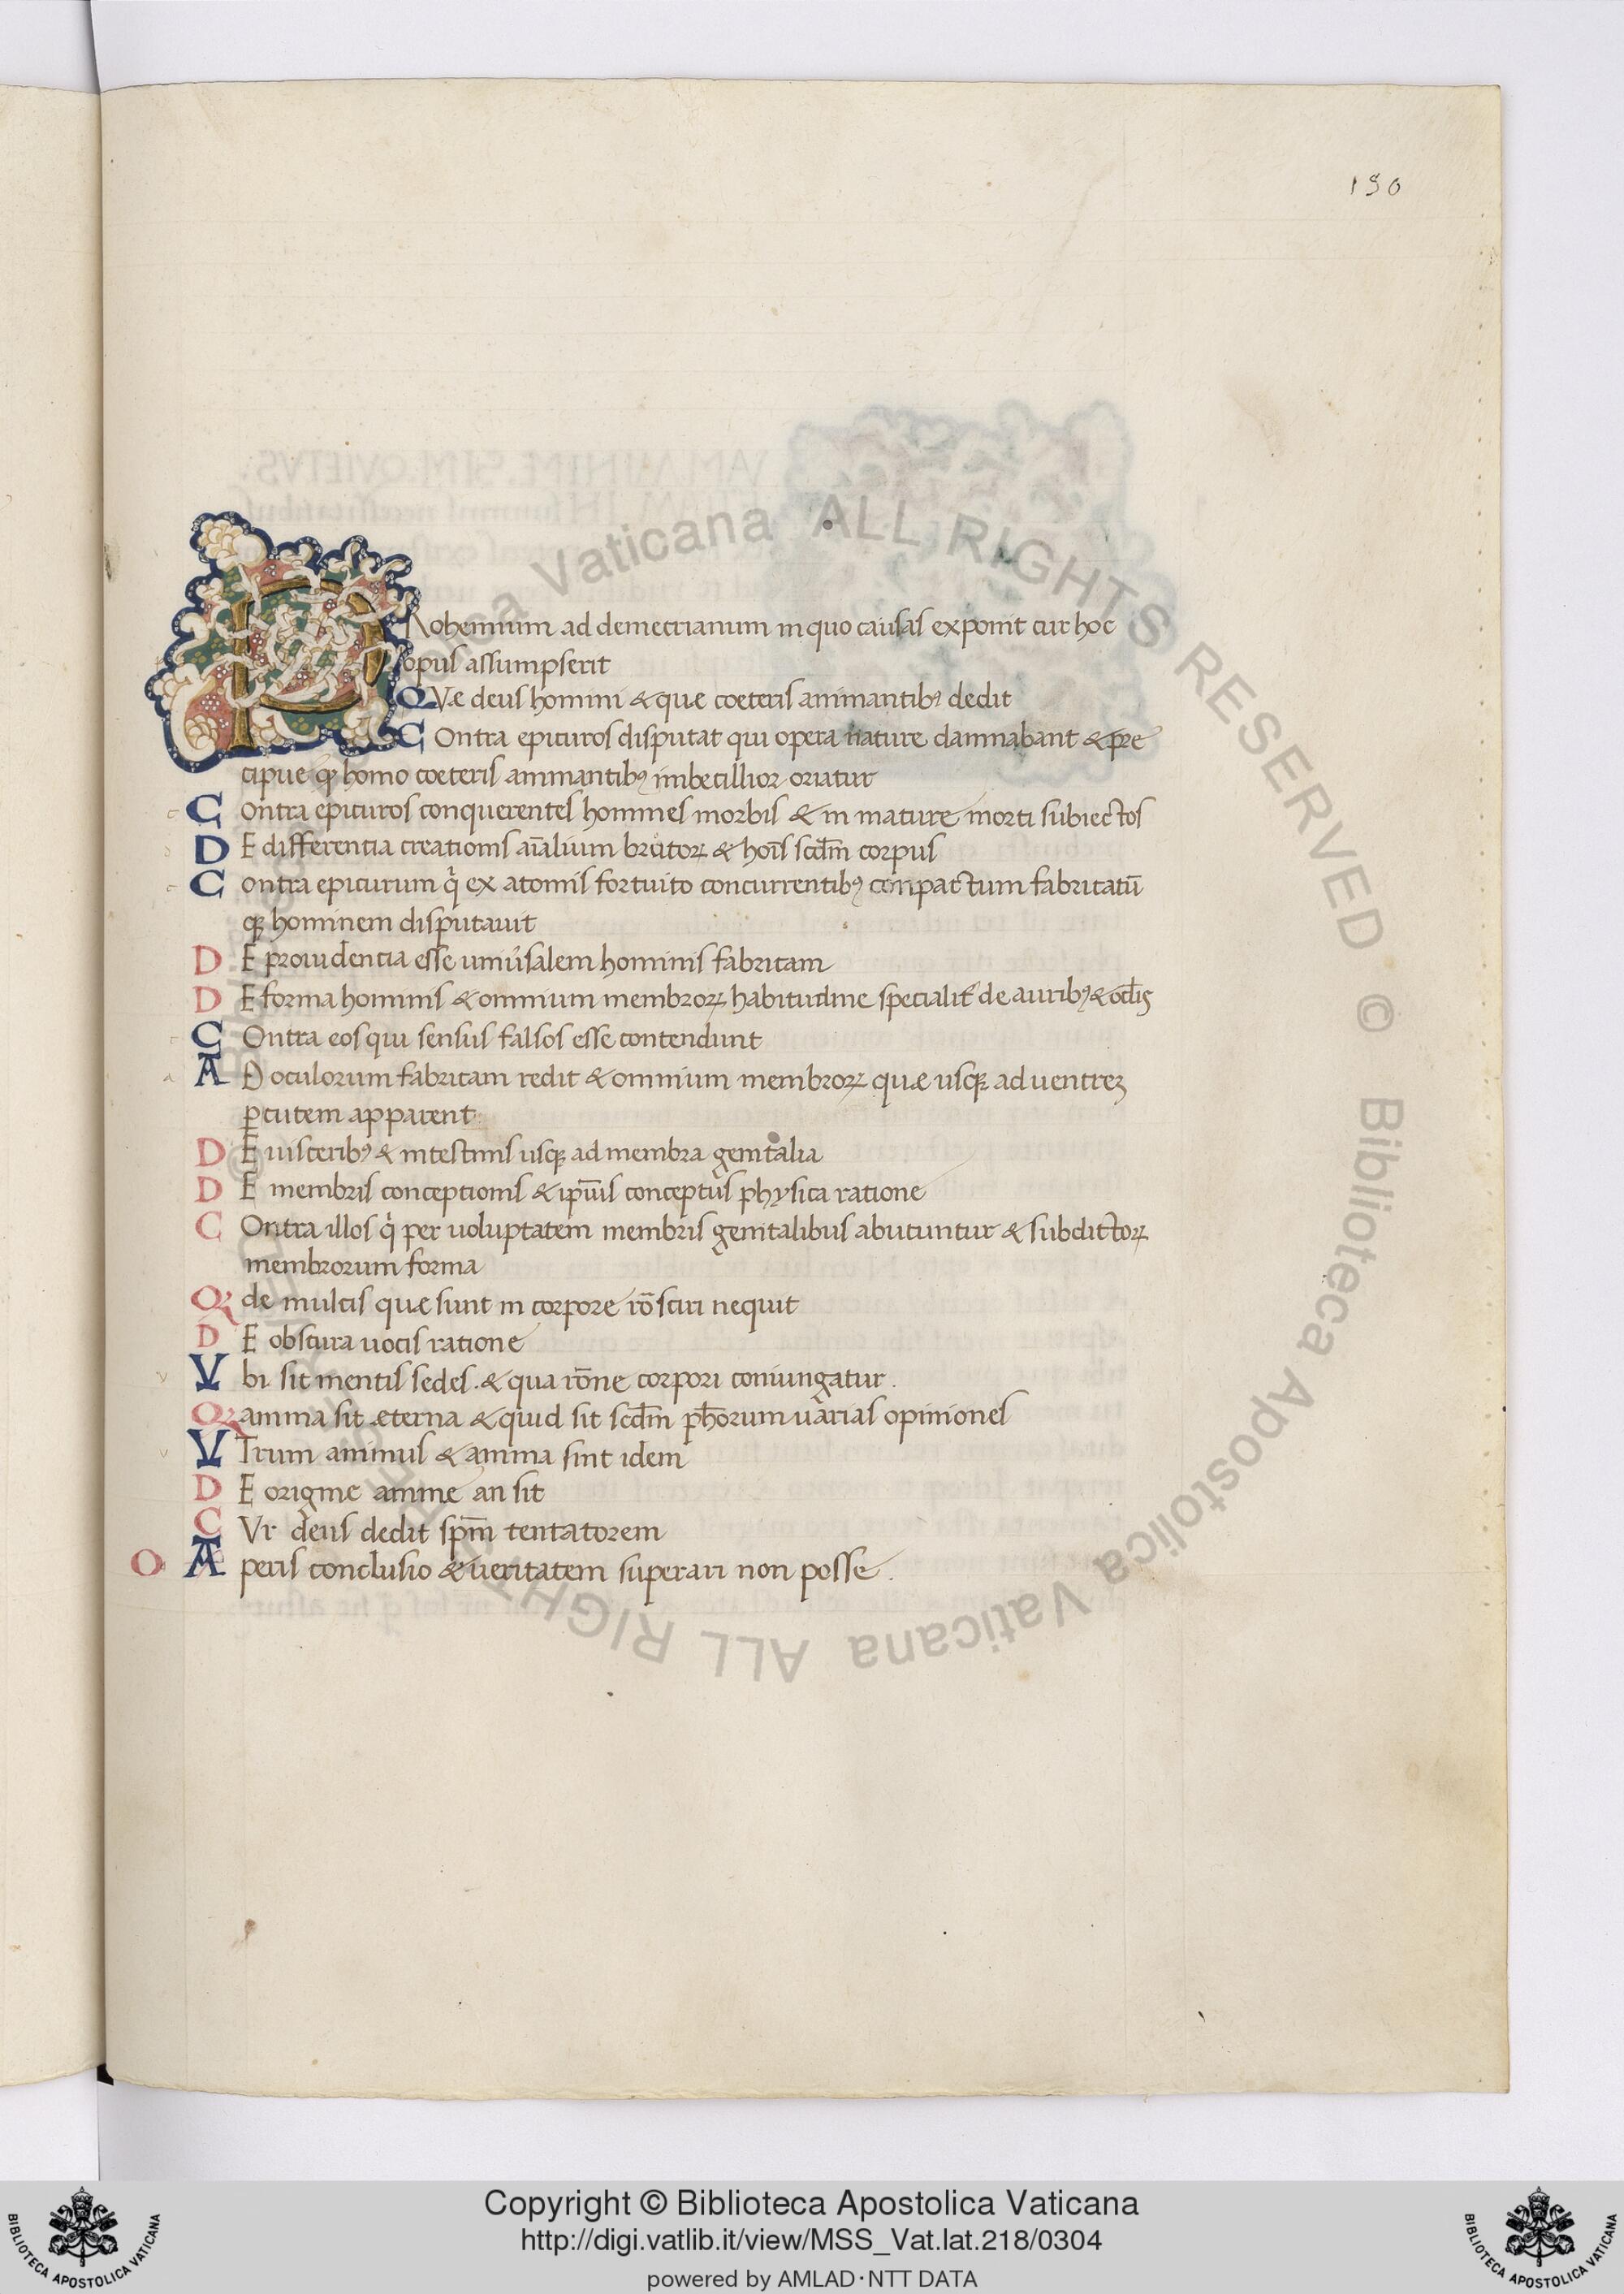 150
PRohemium ad demetrianum in quo causas exponit cur hoc
opus assumpserit
QVæ deus homini & quæ coeteris animantibꝰ dedit
COntra epicuros disputat qui opera nature damnabant & pre
cipue qꝫ homo coeteris animantibꝰ imbecillior oriatur
Contra epicuros conquerentes homines morbis & in mature morti subiectos
DE differentia creationis aīalium brutoꝝ & hoīs scđm corpus
Contra epicurum q̇ ex atomis fortuito concurrentibꝰ conpactum fabricatū
qꝫ hominem disputauit
DE prouidentia esse uniu̓salem hominis fabricam
DE forma hominis & omnium membroꝝ habitudine specialit̓ de auribꝰ & oc̄lis
COntra eos qui sensus falsos esse contendunt
AD oculorum fabricam redit & omnium membroꝝ quæ usqꝫ ad uentreꝫ
ꝑ cutem apparent
DE uisceribꝰ & intestinis usqꝫ ad membra genitalia
DE membris conceptionis & ip̄ius conceptus physica ratione
COntra illos q̇ per uoluptatem membris genitalibus abutuntur & subdictoꝝ
membrorum forma
Q de multis quæ sunt in corpore rō sciri nequit
DE obscura uocis ratione
Vbi sit mentis sedes . & qua rōne corpori coniungatur .
Q anima sit æterna & quid sit scđm ph̄orum uarias opiniones
VTrum animus & anima sint idem
DE origine anime an sit
CVr deus dedit sp̄m tentatorem
O A peris conclusio & ueritatem superari non posse .
© Biblioteca Apostolica Vaticana ALL RIGHTS RESERVED
Copyright © Biblioteca Apostolica Vaticana
http://digi.vatlib.it/view/MSS_Vat.lat.218/0304
powered by AMLAD·NTT DATA
BIBLIOTECA APOSTOLICA VATICANA
BIBLIOTECA APOSTOLICA VATICANA